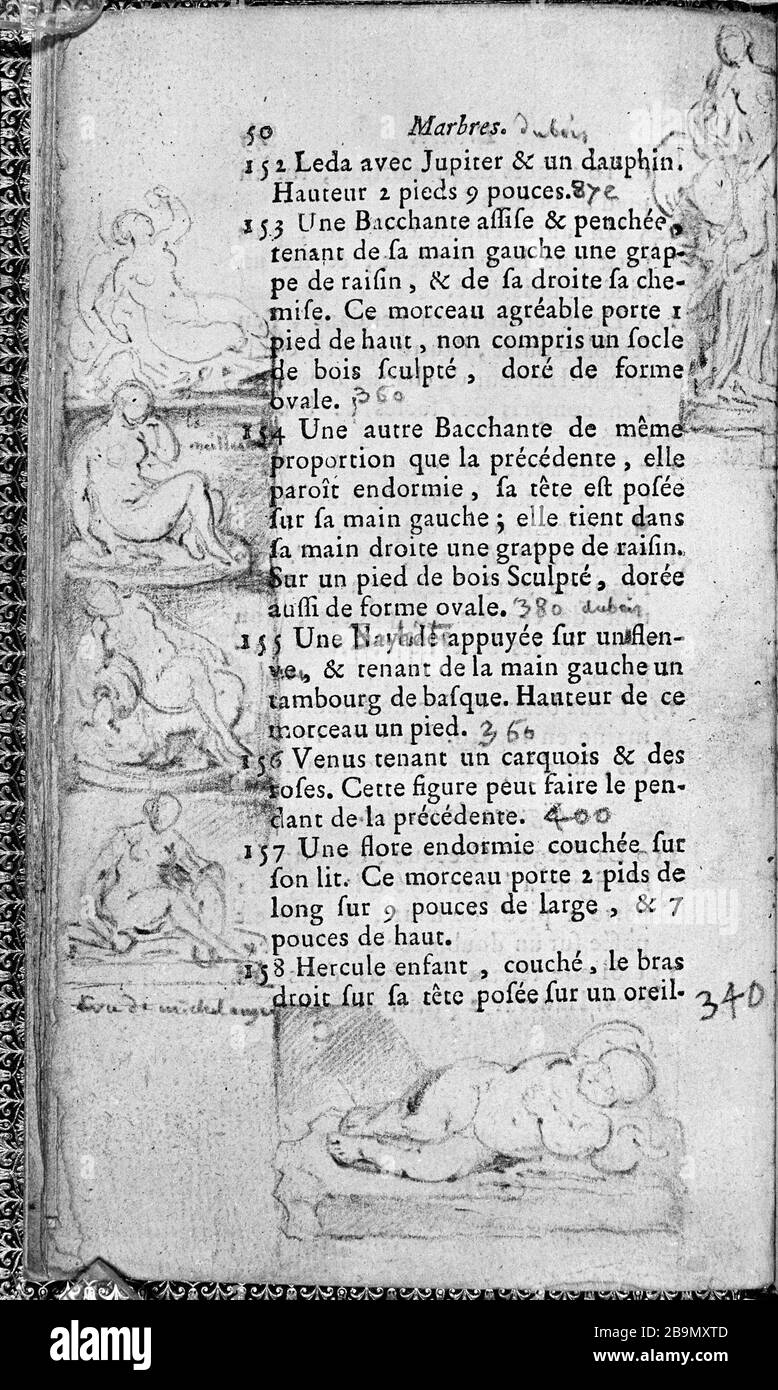 50 Marbres. dubois
152 Leda avec Jupiter & un dauphin.
Hauteur 2 pieds 9 pouces. 872
153 Une Bacchante aſſiſe & penchée,
tenant de ſa main gauche une grap-
pe de raiſin, & de ſa droite ſa che-
miſe. Ce morceau agréable porte 1
pied de haut, non compris un ſocle
de bois ſculpté, doré de forme
ovale. 360
154 Une autre Bacchante de même
proportion que la précédente, elle
paroît endormie, ſa tête eſt poſée
ſur ſa main gauche; elle tient dans
ſa main droite une grappe de raiſin.
Sur un pied de bois Sculpté, dorée
auſſi de forme ovale. 380 dubois
155 Une appuyée ſur un flen-
ve, & tenant de la main gauche un
tambourg de baſque. Hauteur de ce
morceau un pied. 360
156 Venus tenant un carquois & des
roſes. Cette figure peut faire le pen-
dant de la précédente. 400
157 Une flore endormie couchée ſur
ſon lit. Ce morceau porte 2 pids de
long ſur 9 pouces de large, & 7
pouces de haut.
158 Hercule enfant, couché, le bras
droit ſur ſa tête poſée ſur un oreil- 340
de michel ange
alamy
Image ID: 2B9MXTD
www.alamy.com